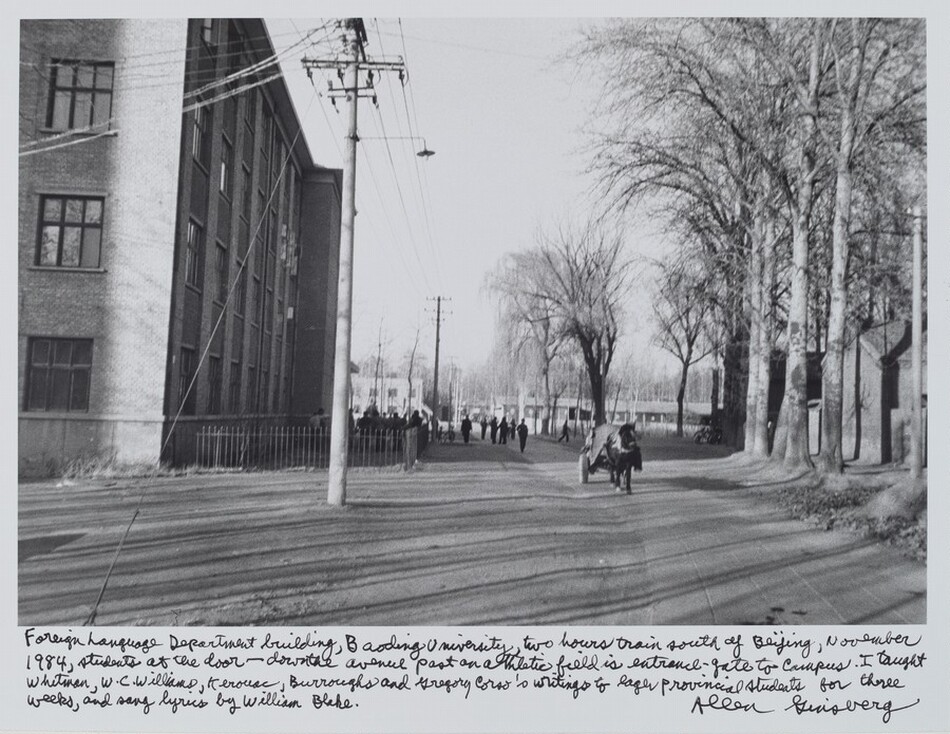 Foreign Language Department building, Baoding University, two hours train south of Beijing, November
1984, students at the door — down the avenue past on athletic field is entrance-gate to campus. I taught
Whitman, W.C. Williams, Kerouac, Burroughs and Gregory Corso's writings to eager provincial students for three
weeks, and sang lyrics by William Blake.
Allen Ginsberg